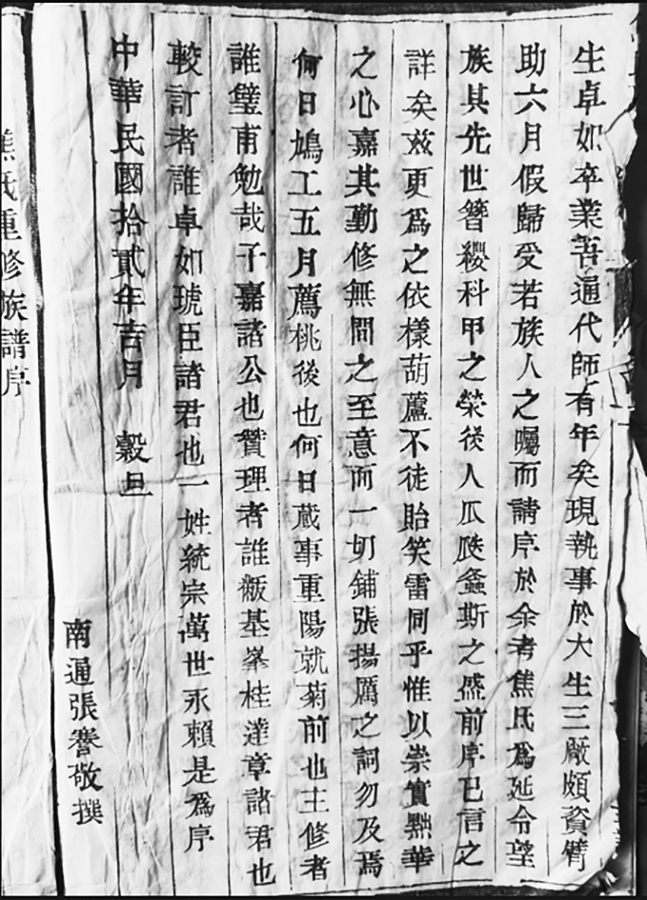 生卓如卒業吾通代師有年矣現執事於大生三廠頗資臂
助六月假歸受若族人之囑而請序於余考焦氏為延令望
族其先世簪纓科甲之榮後人瓜瓞螽斯之盛前序已言之
詳矣茲更為之依樣葫蘆不徒貽笑雷同乎惟以崇實黜華
之心嘉其勤修無間之至意而一切鋪張揚厲之詞勿及焉
何日鳩工五月薦桃後也何日蕆事重陽就菊前也主修者
誰璧甫勉哉子嘉諸公也贊理者誰 基峯桂達章諸君也
較訂者誰卓如琥臣諸君也一姓統宗萬世永賴是為序
中華民國拾貳年吉月 穀旦
南通張謇敬撰
焦氏重修族譜序